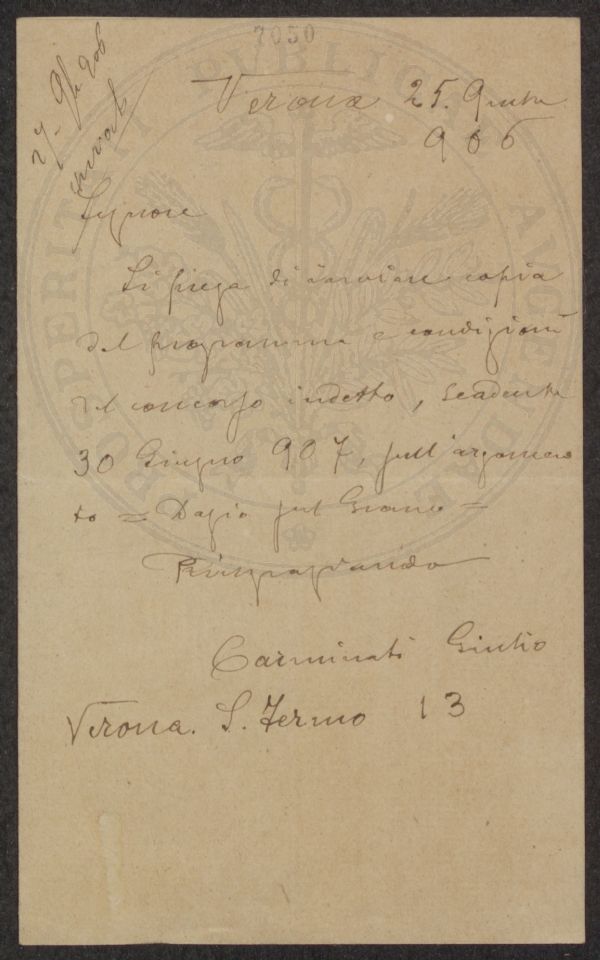 7050
27-9/bre 906
inviato
Verona 25. 9mbre
906
Signore
Si prega di inviare copia
del programma e condizioni
del concorso indetto, scadente
30 Giugno 907, sull'argomen
to = Dazio sul Grano =
Ringraziando
Carminati Giulio
Verona. S. Fermo 13
PROSPERITATI PUBLICAE AVGENDAE